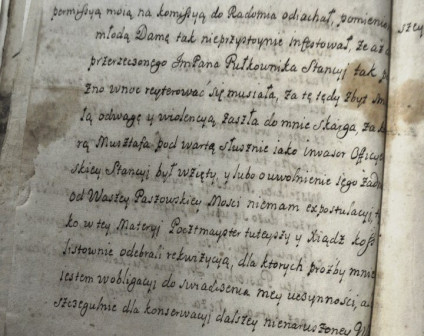 permissyą moią na komissyą do Radomia odiachał, pomienio
młodą Damę tak nieprzystoynie infestował, że aż
przerzeczonego ImPana Pułkownika Stancyj tak p
zno wnoc reyterować się musiała, za tę tedy zbyt śm
łą odwagę y wiolencyą, zaszła do mnie Skarga, za k
rą Murztafa pod wartę słusznie iako invasor Officye
skiey Stancyi był wzięty, y lubo o uwolnienie Iego żadn
od Waszey Paszowskiey Mości niemam expostulacyi, t
ko w tey Materyi Pocztmayster tuteyszy y Xiądz
listownie odebrali rekwizycyą, dla ktorych prożby mnie
iestem wobligacyi do swiadczenia mey uczynności, a
szczegulnie dla konserwacyi dalszey nienaruszoney
szey